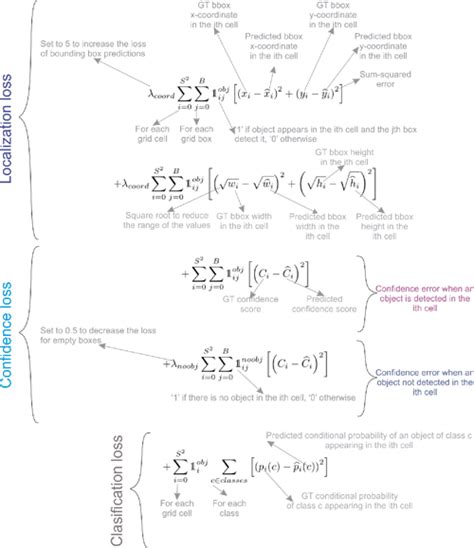 GT bbox
x-coordinate
in the ith cell
GT bbox
y-coordinate
in the ith cell
Set to 5 to increase the loss
of bounding box predictions
Predicted bbox
x-coordinate
in the ith cell
Predicted bbox
y-coordinate
in the ith cell
Sum-squared
error
Localization loss
λ_coord ∑_{i=0}^{S²} ∑_{j=0}^{B} 𝟙_{ij}^{obj} [(x_i − x̂_i)² + (y_i − ŷ_i)²]
For each
grid cell
For each
grid box
'1' if object appears in the ith cell and the jth box
detect it, '0' otherwise
GT bbox height
in the ith cell
+λ_coord ∑_{i=0}^{S²} ∑_{j=0}^{B} 𝟙_{ij}^{obj} [(√w_i − √ŵ_i)² + (√h_i − √ĥ_i)²]
Square root to reduce
the range of the values
GT bbox width
in the ith cell
Predicted bbox
width in the
ith cell
Predicted bbox
height in the
ith cell
Confidence loss
+ ∑_{i=0}^{S²} ∑_{j=0}^{B} 𝟙_{ij}^{obj} [(C_i − Ĉ_i)²]
GT confidence
score
Predicted
confidence score
Confidence error when an
object is detected in the
ith cell
Set to 0.5 to decrease the loss
for empty boxes
+λ_noobj ∑_{i=0}^{S²} ∑_{j=0}^{B} 𝟙_{ij}^{noobj} [(C_i − Ĉ_i)²]
'1' if there is no object in the ith cell, '0' otherwise
Confidence error when an
object not detected in the
ith cell
Clasification loss
Predicted conditional probability of an object of class c
appearing in the ith cell
+ ∑_{i=0}^{S²} 𝟙_i^{obj} ∑_{c∈classes} [(p_i(c) − p̂_i(c))²]
For each
grid cell
For each
class
GT conditional probability
of class c appearing in the ith cell